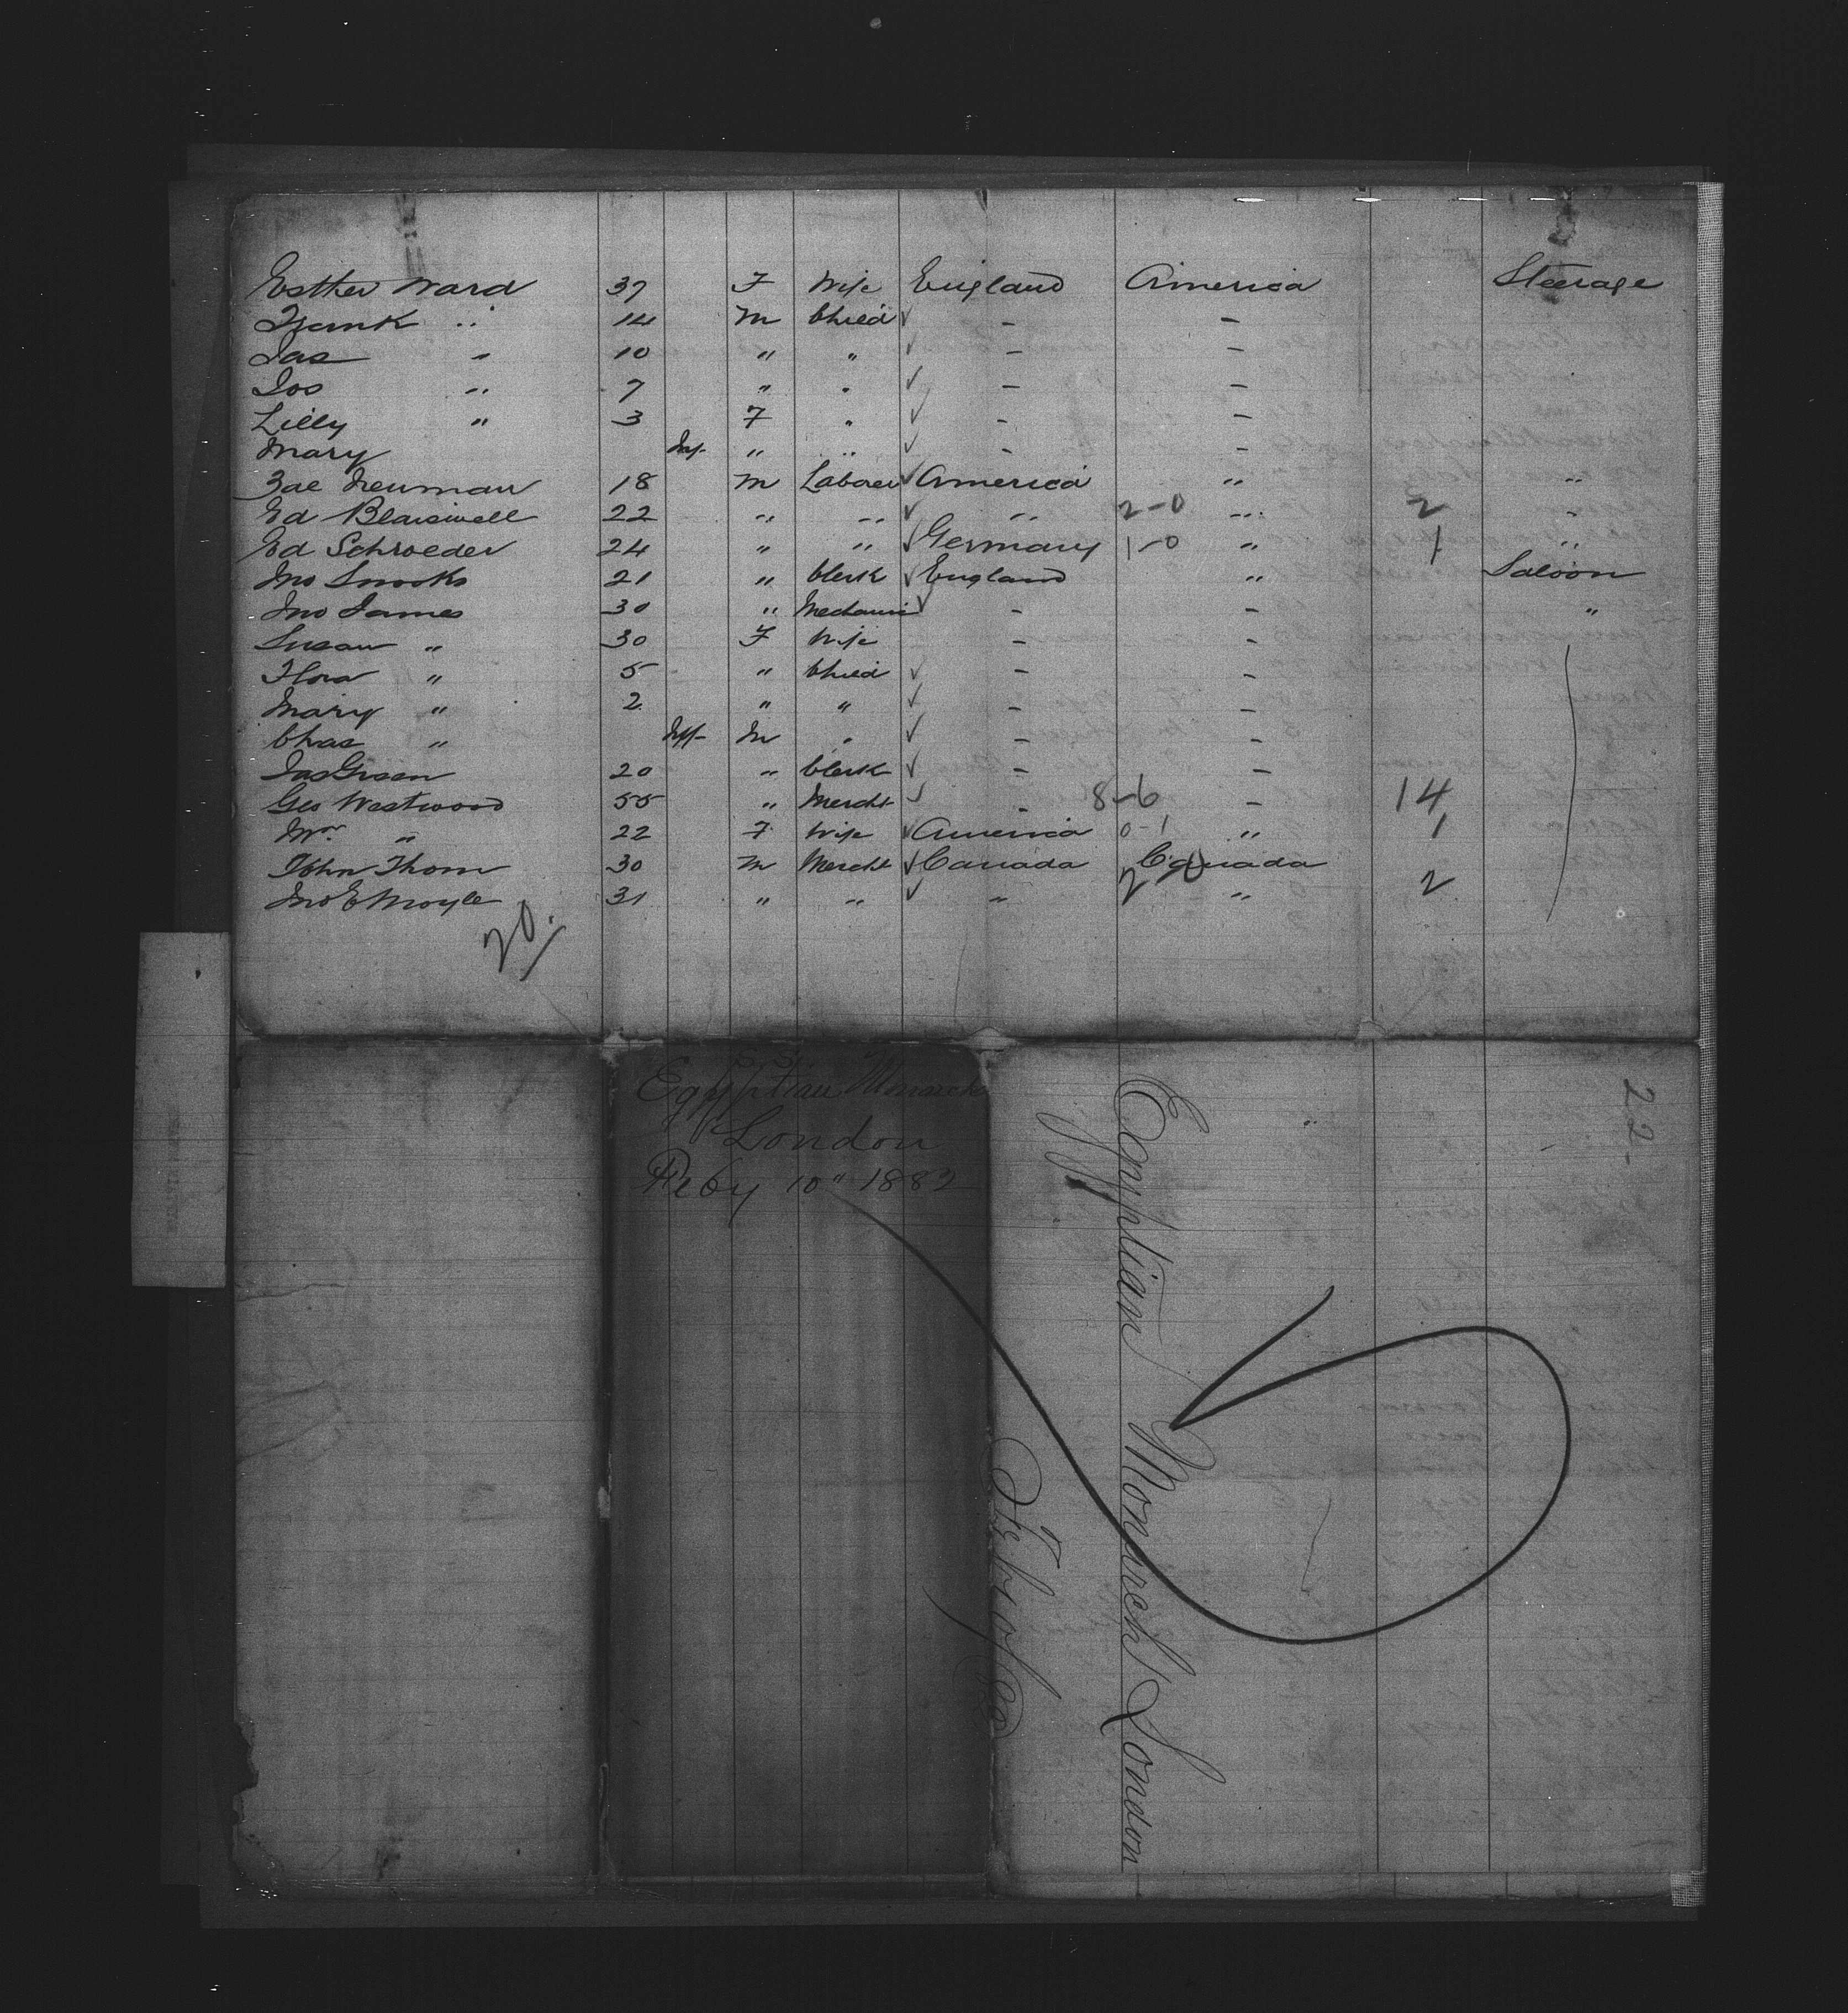 Esther Ward 37 F Wife England America Steerage
Frank " 14 M Child ✓ - -
Jas " 10 " " ✓ - -
Jos " 7 " " ✓ - -
Lilly " 3 F " ✓ - -
Mary Inf. " " ✓ - -
Zae Neuman 18 M Laborer ✓ America " "
Ed Blaiswell 22 " " ✓ " 2-0 " 2 "
Ed Schroeder 24 " " ✓ Germany 1-0 " 1 "
Jno Snooks 21 " Clerk ✓ England " Saloon
Jno James 30 " Mechanic ✓ - - "
Susan " 30 F Wife - -
Flora " 5 " Child ✓ - -
Mary " 2 " " ✓ - -
Chas " Inf- M " ✓ - -
Jas Green 20 " Clerk ✓ - -
Geo Westwood 55 " Mercht ✓ - 8-6 - 14
Mrs " 22 F Wife ✓ America 0-1 " 1
John Thom 30 M Mercht ✓ Canada Canada
Jno E Moyle 31 " " ✓ " 2-0 " 2
20.
S.S.
Egyptian Monarch
London
Feby 10" 1882
Egyptian Monarch London
22-